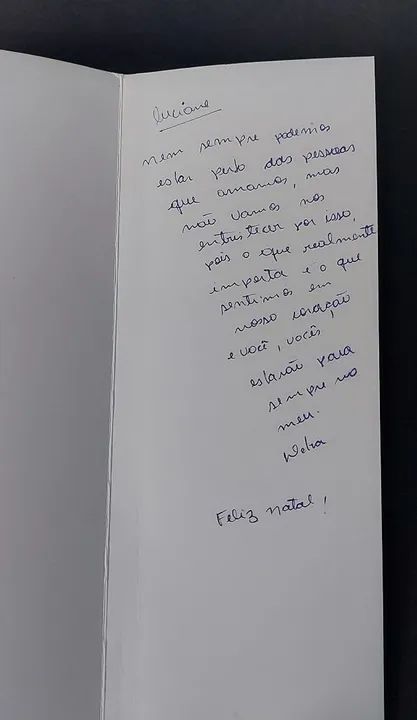 Luciane
nem sempre podemos
estar perto das pessoas
que amamos, mas
não vamos nos
entristecer por isso,
pois o que realmente
importa é o que
sentimos em
nosso coração
e você, vocês,
estarão para
sempre no
meu.
Feliz natal!